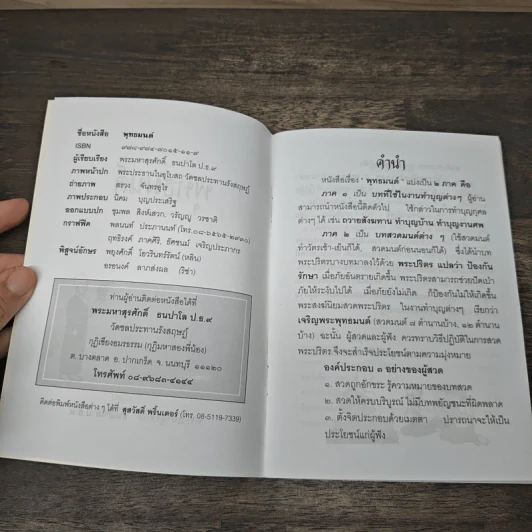 ชื่อหนังสือ พุทธมนต์
ISBN ๙๗๘-๙๗๔-๗๐๑๕-๑๑-๙
ผู้เรียบเรียง พระมหาสุรศักดิ์ ธนปาโล ป.ธ.๙
ภาพหน้าปก พระประธานในอุโบสถ วัดชลประทานรังสฤษฎ์
ถ่ายภาพ สรวง จันทรอุไร
ภาพประกอบ นิคม บุญประเสริฐ
ออกแบบปก ชุมพล สิงห์เสวก, วรัญญู วรชาติ
กราฟฟิค พลนนท์ ประภานนท์
ฤทธิรงค์ ภาคศิริ, ธัศชนม์ เจริญประภากร
พิสูจน์อักษร พยุงศักดิ์ โอวรินทร์รัตน์ (หลิน)
อรอนงค์ ลาภส่งผล (ริช่า)
ท่านผู้อ่านติดต่อหนังสือได้ที่
พระมหาสุรศักดิ์ ธนปาโล ป.ธ.๙
วัดชลประทานรังสฤษฎ์
กุฏิเชียงมธรรม (กุฏิมหาสองพี่น้อง)
ต. บางตลาด อ. ปากเกร็ด จ. นนทบุรี ๑๑๑๒๐
โทรศัพท์ ๐๘-๙๖๘๓-๔๑๔๔
ติดต่อพิมพ์หนังสือต่าง ๆ ได้ที่ สุสวัสดิ์ พริ้นเตอร์ (โทร. 08-5119-7339)
คำนำ
หนังสือเรื่อง "พุทธมนต์" แบ่งเป็น ๒ ภาค คือ
ภาค ๑ เป็น บทที่ใช้ในงานทำบุญต่างๆ ผู้อ่าน
สามารถนำหนังสือนี้ติดตัวไป ใช้กล่าวในการทำบุญกุศล
ต่างๆ ได้ เช่น ถวายสังฆทาน ทำบุญบ้าน ทำบุญงานศพ
ภาค ๒ เป็น บทสวดมนต์ต่าง ๆ (ใช้สวดมนต์
ทำวัตรเช้า-เย็นก็ได้, สวดมนต์ก่อนนอนก็ได้) ซึ่งได้นำบท
พระปริตรบางบทมาลงไว้ด้วย พระปริตร แปลว่า ป้องกัน
รักษา เมื่อภัยอันตรายเกิดขึ้น พระปริตรสามารถช่วยปัดเป่า
ภัยให้ระงับไปได้ เมื่อภัยยังไม่เกิด ก็ป้องกันไม่ให้เกิดขึ้น
พระสงฆ์นิยมสวดพระปริตร ในงานทำบุญต่างๆ เรียกว่า
เจริญพระพุทธมนต์ (สวดมนต์ ๗ ตำนานบ้าง, ๑๒ ตำนาน
บ้าง) ฉะนั้น ผู้สวดและผู้ฟัง ควรทราบวิธีปฏิบัติในการสวด
พระปริตร จึงจะสำเร็จประโยชน์ตามความมุ่งหมาย
องค์ประกอบ ๓ อย่างของผู้สวด
๑. สวดถูกอักขระ รู้ความหมายของบทสวด
๒. สวดให้ครบบริบูรณ์ ไม่มีบทพยัญชนะที่ผิดพลาด
๓. ตั้งจิตประกอบด้วยเมตตา ปรารถนาจะให้เป็น
ประโยชน์แก่ผู้ฟัง